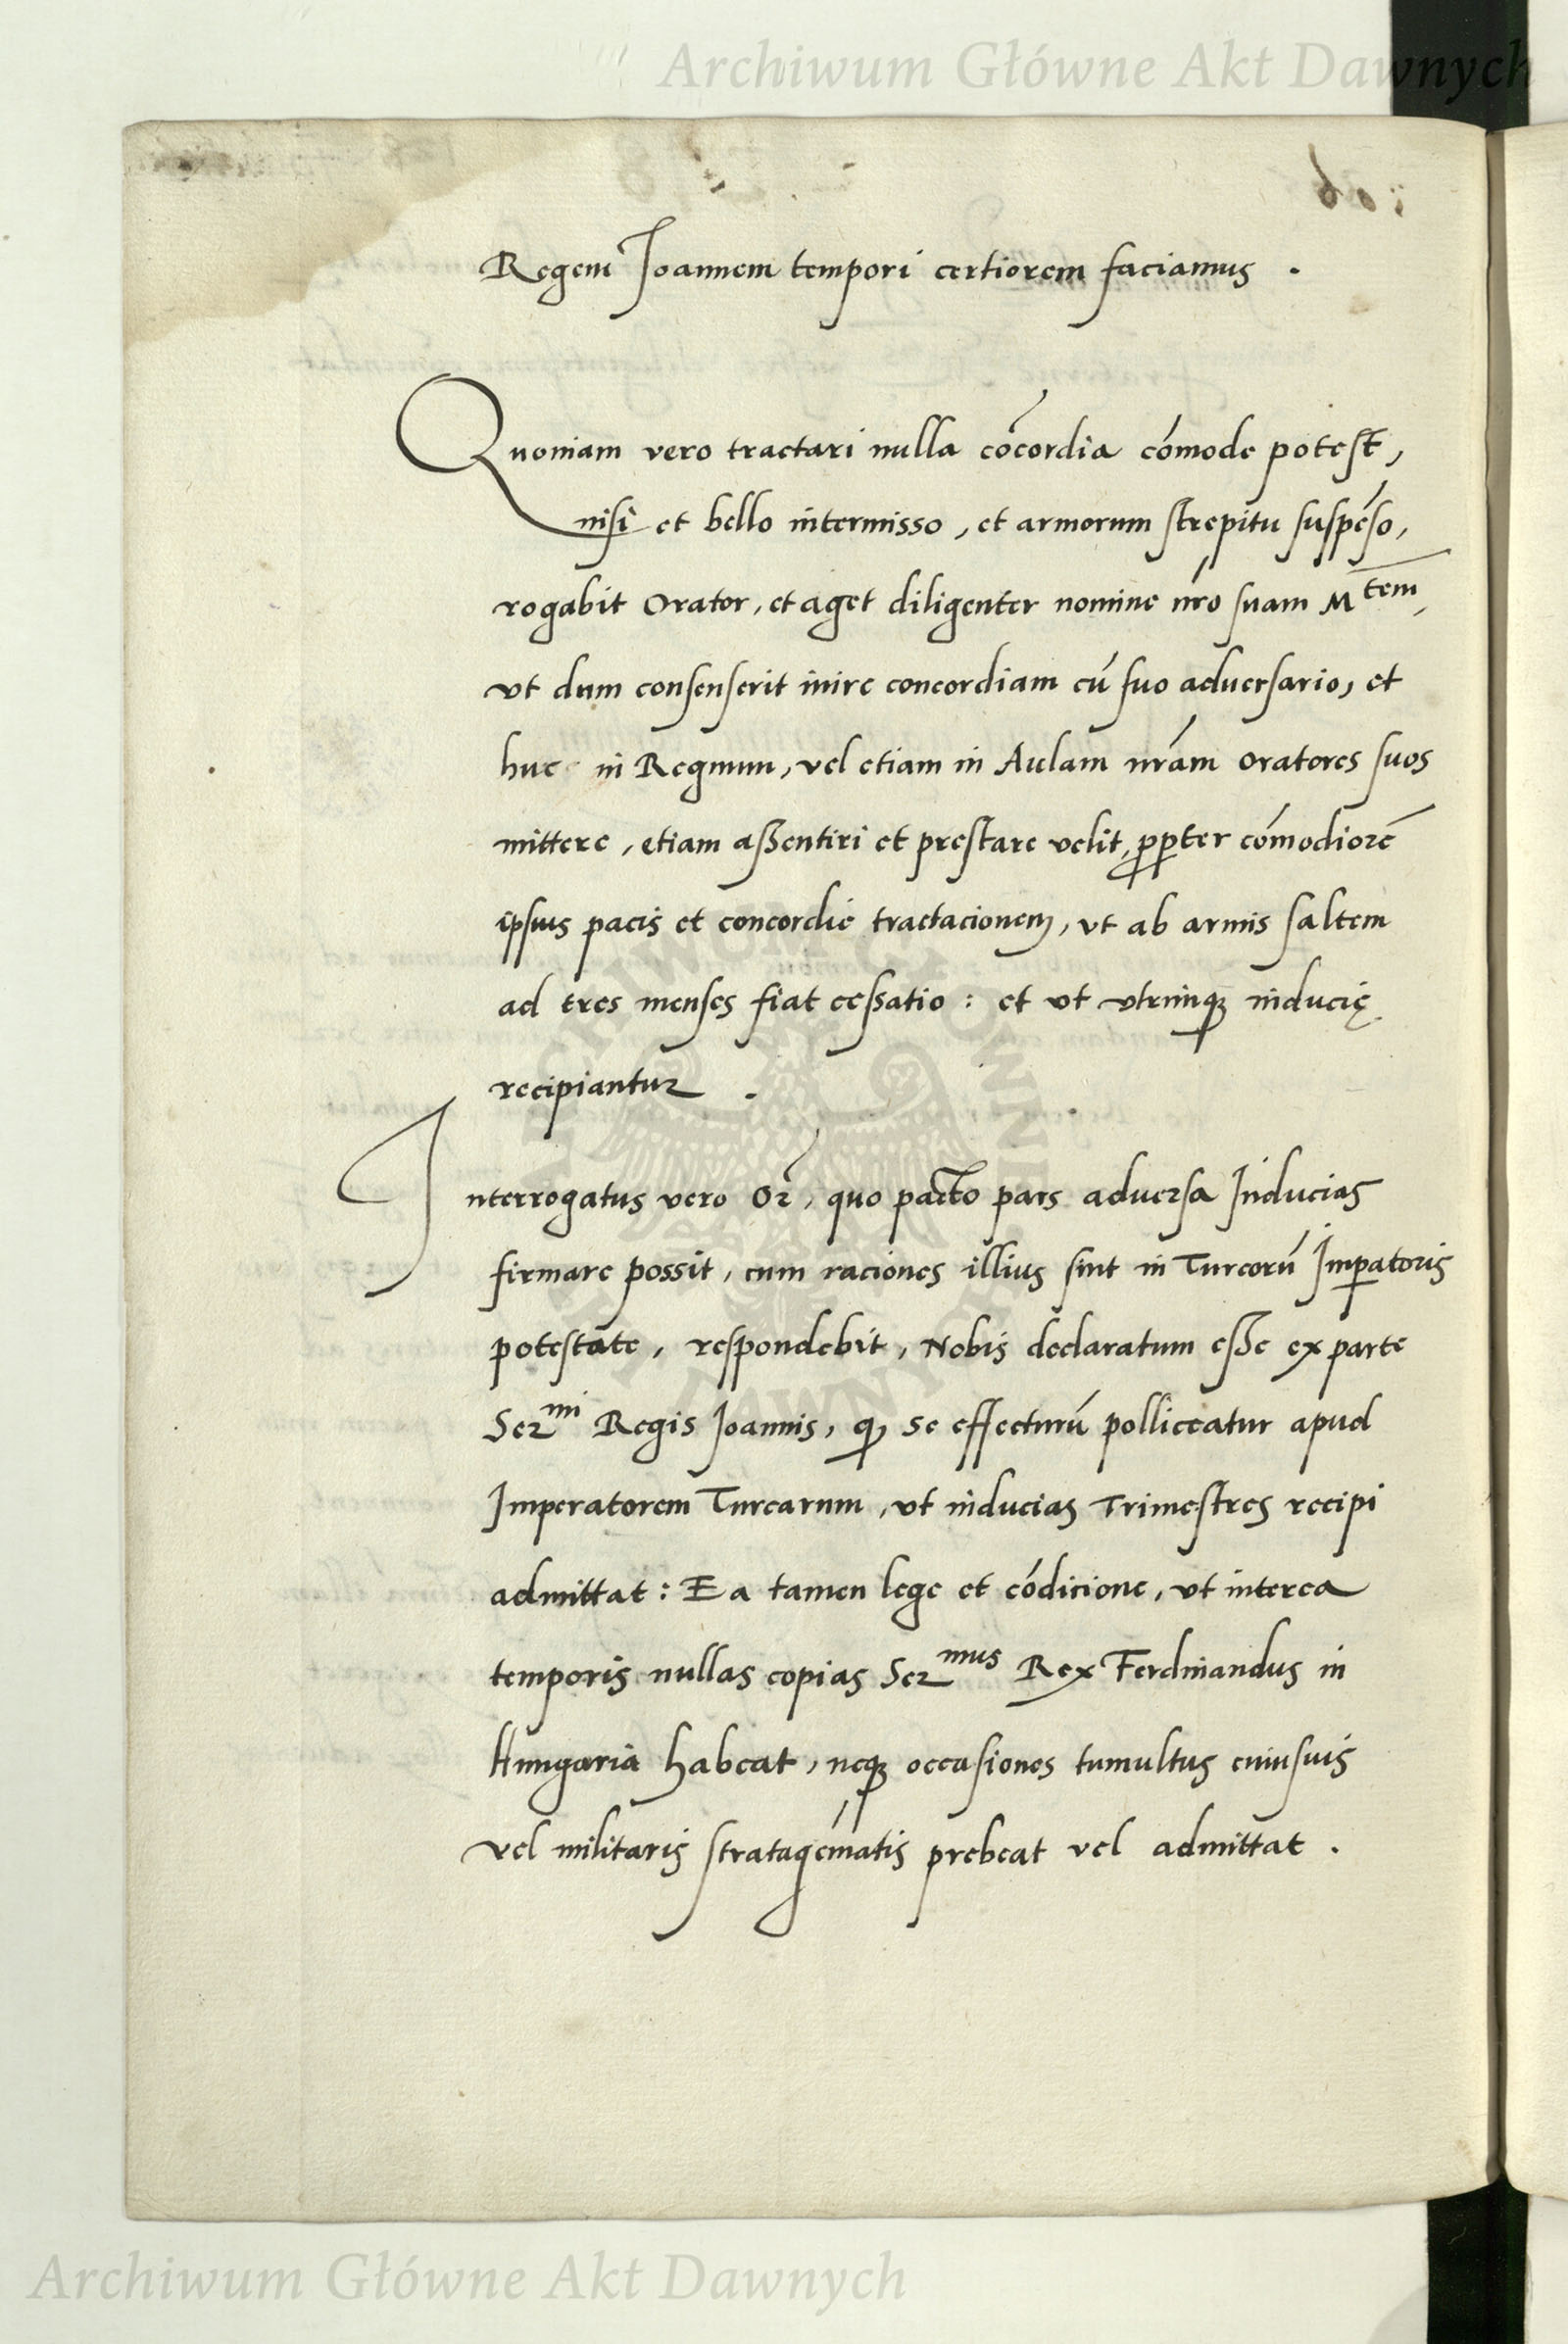 Archiwum Główne Akt Dawnych
Regem Joannem tempori certiorem faciamus .
Quoniam vero tractari nulla cōcordia cōmode potest,
nisi et bello intermisso, et armorum strepitu suspēso,
rogabit Orator, et aget diligenter nomine nr̄o suam M^tem,
vt dum consenserit inire concordiam cū suo adversario, et
huc in Regnum, vel etiam in Aulam nr̄am oratores suos
mittere, etiam aßentiri et prestare velit, ꝓpter cōmodiorē
ipsius pacis et concordie tractacionem, vt ab armis saltem
ad tres menses fiat cessatio : et vt vtrinqꝫ inducię
recipiantur .
Interrogatus vero Or̄, quo pacto pars adversa Inducias
firmare possit, cum raciones illius sint in Turcorū Imꝑatoris
potestate, respondebit, Nobis declaratum eße ex parte
Ser^mi Regis Joannis, qꝫ se effecturū polliceatur apud
Imperatorem Turcarum, vt inducias Trimestres recipi
admittat : Ea tamen lege et cōdicione, vt interea
temporis nullas copias Ser^mus Rex Ferdinandus in
Hungaria habeat, neqꝫ occasiones tumultus cuiusuis
vel militaris stratagēmatis prebeat vel admittat .
ARCHIWUM GŁÓWNE AKT DAWNYCH
Archiwum Główne Akt Dawnych